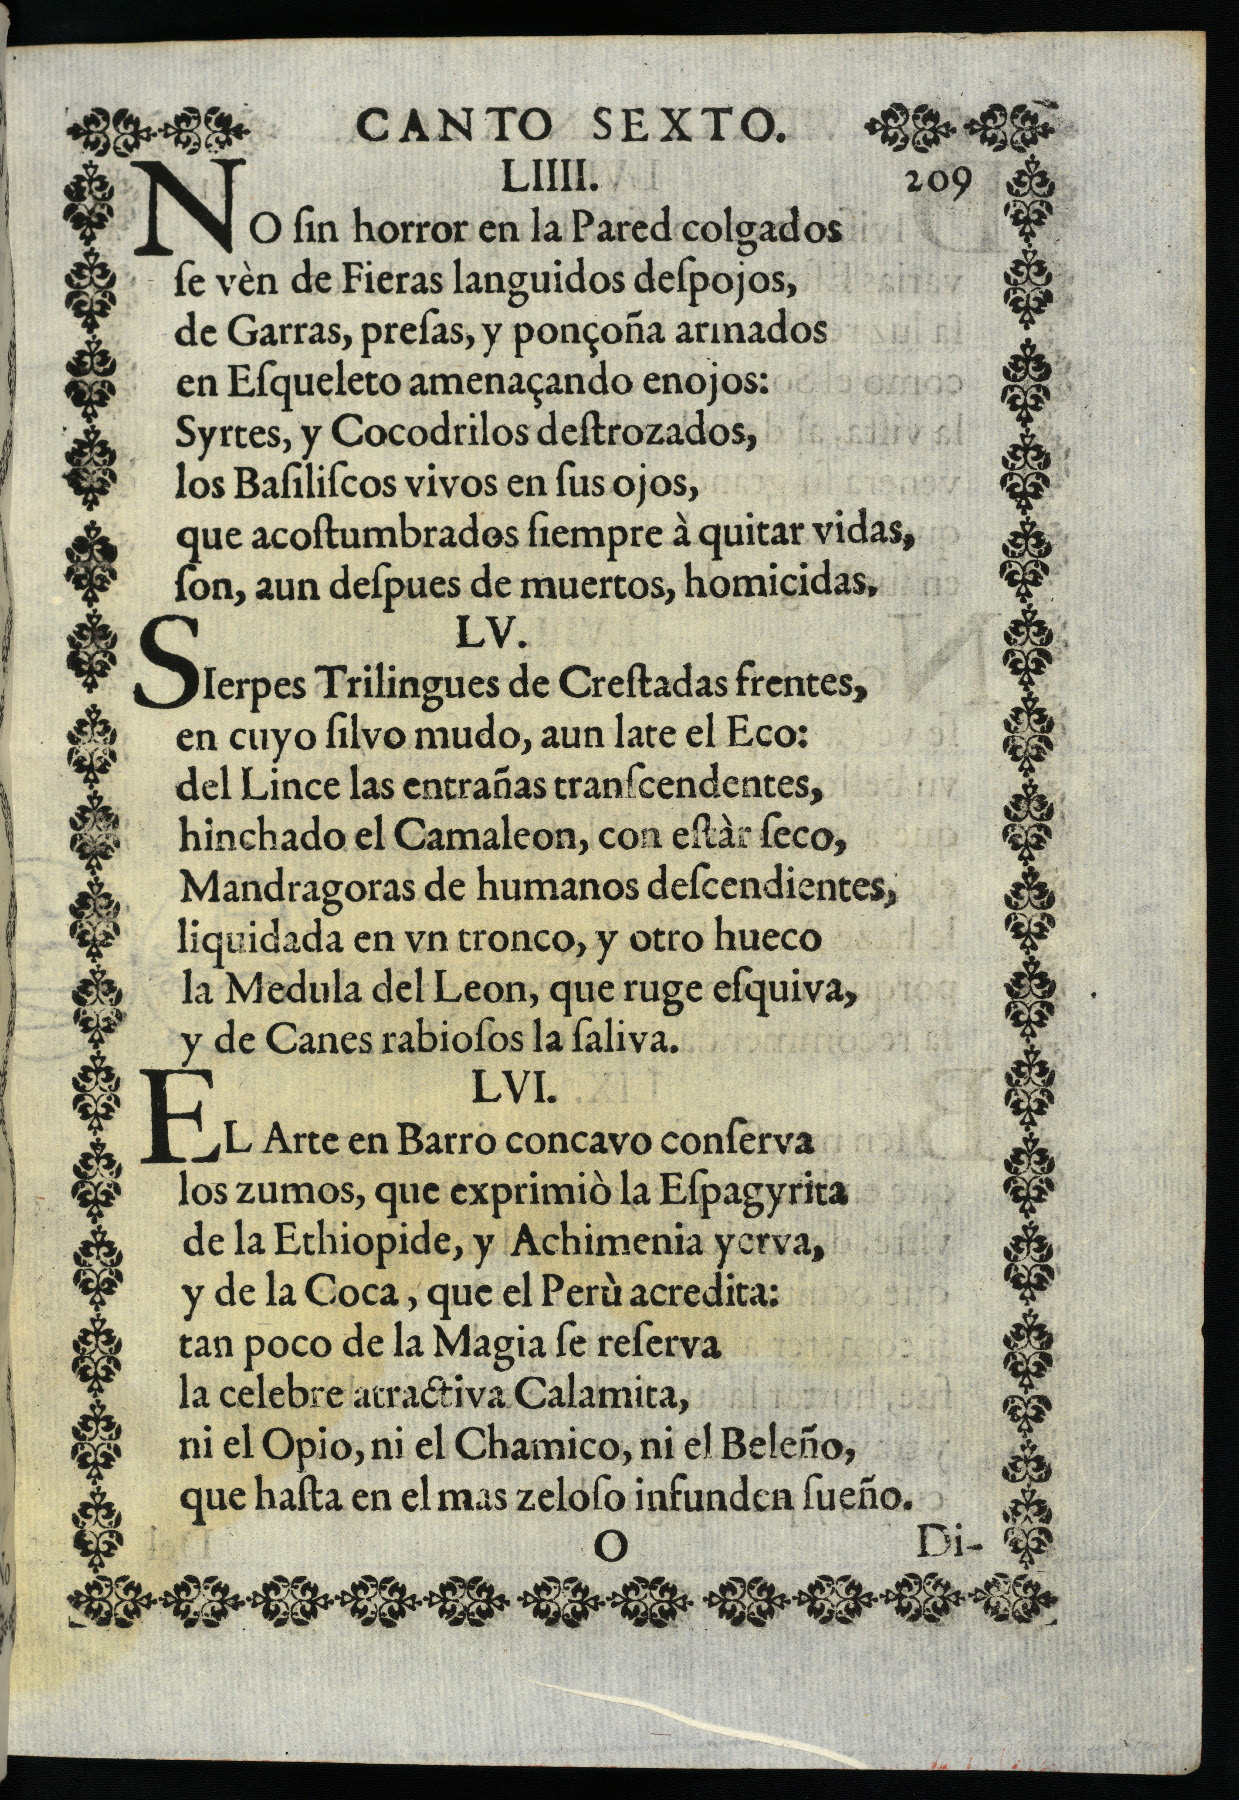 CANTO SEXTO.
LIIII. 209
NO ſin horror en la Pared colgados
ſe vèn de Fieras languidos deſpojos,
de Garras, preſas, y ponçoña armados
en Eſqueleto amenaçando enojos:
Syrtes, y Cocodrilos deſtrozados,
los Baſiliſcos vivos en ſus ojos,
que acoſtumbrados ſiempre à quitar vidas,
ſon, aun deſpues de muertos, homicidas.
LV.
SIerpes Trilingues de Creſtadas frentes,
en cuyo ſilvo mudo, aun late el Eco:
del Lince las entrañas tranſcendentes,
hinchado el Camaleon, con eſtàr ſeco,
Mandragoras de humanos deſcendientes,
liquidada en vn tronco, y otro hueco
la Medula del Leon, que ruge eſquiva,
y de Canes rabioſos la ſaliva.
LVI.
EL Arte en Barro concavo conſerva
los zumos, que exprimiò la Eſpagyrita
de la Ethiopide, y Achimenia yerva,
y de la Coca, que el Perù acredita:
tan poco de la Magia ſe reſerva
la celebre atractiva Calamita,
ni el Opio, ni el Chamico, ni el Beleño,
que haſta en el mas zeloſo infunden ſueño.
O Di-